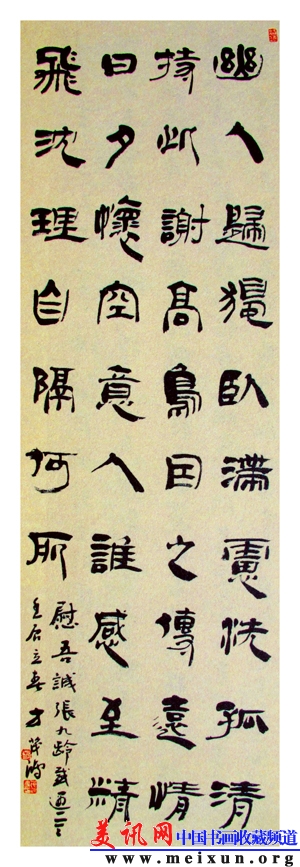 幽人歸獨臥滯慮洗孤清
持此謝高鳥因之傳遠情
日夕懷空意人誰感至精
飛沈理自隔何所
慰吾誠 張九齡感遇二
立春
美讯网 中国书画收藏频道
www.meixun.org